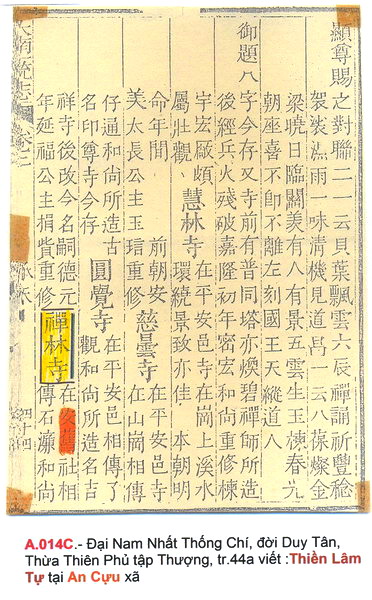 顯尊賜之對聯二一云貝葉飄雲六辰禪誦祈豐稔
袈裟 雨一味清機見道昌一云八葆燦金
梁曉日臨 美有 有景五雲生 棟春光
朝座喜不卽不離左刻國王天縱道
御題八字今存又寺前有普同塔亦煥碧禪師所造
後經兵火殘破嘉隆初年宻宏和尚重修棟
宇宏敞頗
屬壯觀
慧林寺
在平安邑寺在崗上溪水
環繞景致亦佳 本朝明
命年間 前朝安
美太長公主玉琂重修
慈曇寺
在平安邑寺
在山崗相傳
仔通和尚所造古
名印尊寺今存
圓覺寺
在平安邑相傳了
觀和尚所造名吉
祥寺後改今名嗣德元
年延福公主捐貲重修
禪林寺
在安舊社相
傳石濂和尚
A.014C.- Đại Nam Nhất Thống Chí, đời Duy Tân,
Thừa Thiên Phủ tập Thượng, tr.44a viết :Thiền Lâm
Tự tại An Cựu xã